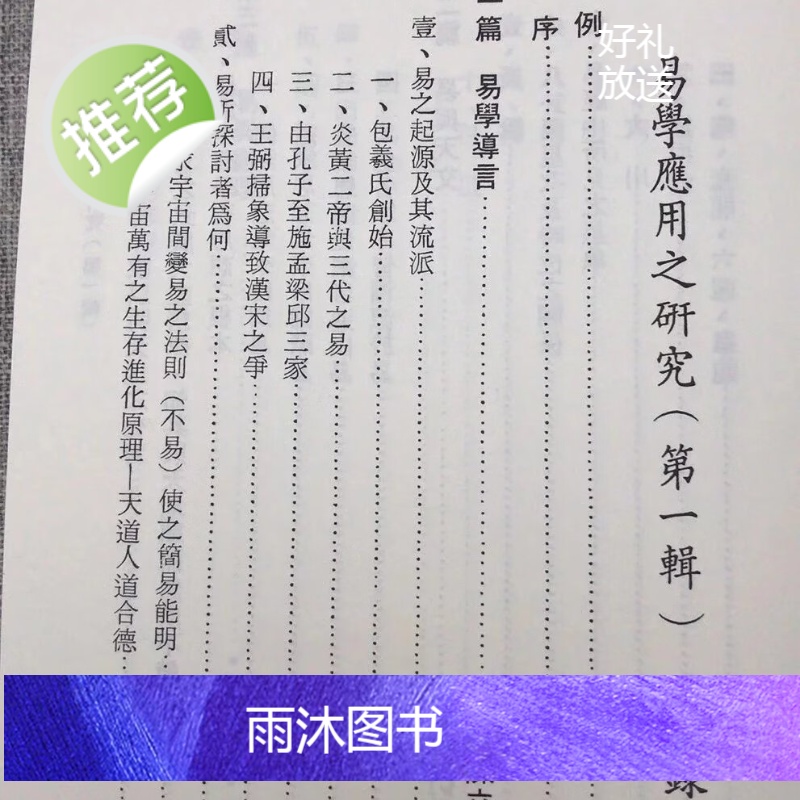 易學應用之研究（第一輯）
例
序
篇 易學導言
壹、易之起源及其流派
一、包羲氏創始
二、炎黃二帝與三代之易
三、由孔子至施孟梁邱三家
四、王弼掃象導致漢宋之爭
貳、易所探討者爲何
宇宙間變易之法則（不易）使之簡易能明
宙萬有之生存進化原理—天道人道合德
推荐
好礼
放送
雨沐图书